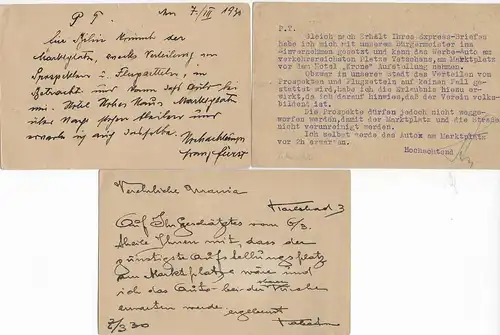 P T. Am 7/III 1930
Für Bilin kommt der
Marktplatz, zwecks Verteilung von
Prospekten u. Flugzetteln, in
Betracht und kann das Auto bei
Hotel Hohes Haus Marktplatz
stehen bleiben und
erwarte ich auf dasselbe.
Hochachtungsv
Franz
P.T.
Gleich nach Erhalt Ihres Express-Briefes
habe ich mich mit unserem Bürgermeister ins
Einvernehmen gesetzt und kann das Werbe-Auto am
verkehrsreichsten Platze Tetschens, am Marktplatz
vor dem Hotel "Krone" Aufstellung nehmen.
Obzwar in unserer Stadt das Verteilen von
Prospekten und Flugzetteln auf keinen Fall ge-
stattet wird, habe ich die Erlaubnis hiezu er-
wirkt, da ich darauf hinwies, daß der Verein volks-
bildend ist.
Die Prospekte dürfen jedoch nicht wegge-
worfen werden, damit der Marktplatz und die Straße
nicht verunreinigt werden.
Ich selbst werde das Auto am Marktplatz
vor 2h erwarten.
Hochachtend
Verehrliche Urania
Karlsbad 3
Auf Ihr Geschätztes vom 6/3.
theile Ihnen mit, dass der
günstigste Aufstellungsplatz
am Marktplatze wäre und
ich das Auto bei der Kirche
erwarten werde.
ergebenst
7/3 30